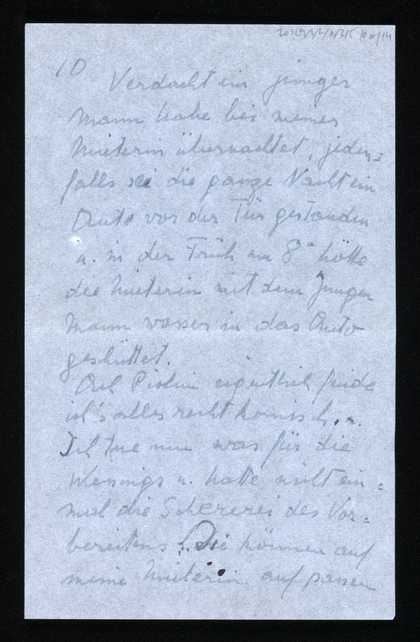 10
Verdacht ein junger
Mann habe bei meiner
Mieterin übernachtet, jeden=
falls sei die ganze Nacht ein
Auto vor der Tür gestanden
u. in der Früh um 8h hätte
die Mieterin mit dem Jungen
Mann wasser in das Auto
geschüttet.
eigentlich finde
ich's alles recht komisch.
Ich tue nun was für die
u. hatte nicht ein=
mal die Schererei des Vor=
bereitens. Die können auf
meine Mieterin aufpassen